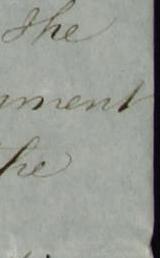 the
ument
the